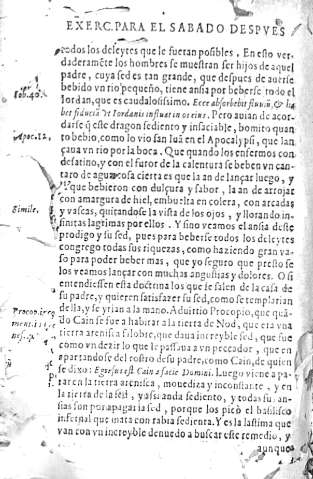 EXERC. PARA EL SABADO DESPVES
todos los deleytes que le fueran posibles. En esto ver-
daderamēte los hombres se muestran ser hijos de aquel
padre, cuya sed es tan grande, que despues de auerse
bebido vn rio pequeño, tiene ansia por beberse todo el
Iob. 40.
Iordan, que es caudalosissimo. Ecce absorbebit fluuiū, & ha
bet fiduciā vt Iordanis influat in os eius. Pero auian de acor-
darse q̄ este dragon sediento y insaciable, bomito quan
Apoc. 12.
to bebio, como lo vio san Iuā en el Apocalypsi, que lan
çaua vn rio por la boca. Que quando los enfermos con
desatino, y con el furor de la calentura se beben vn can-
taro de agua, cosa cierta es que la an de lançar luego, y
que bebieron con dulçura y sabor, la an de arrojar
con amargura de hiel, embuelta en colera, con arcadas
Simile.
y vascas, quitandose la vista de los ojos, y llorando in-
finitas lagrimas por ellos. Y sino veamos el ansia deste
prodigo y su sed, pues para beberse todos los deleytes
congrego todas sus riquezas, como haziendo gran va-
so para poder beber mas, que yo seguro que presto se
los veamos lançar con muchas angustias y dolores. O si
entendiessen esta doctrina los que se salen de la casa de
su padre, y quieren satisfazer su sed, como se templarian
Procop.
della, y se yrian a la mano. Aduirtio Procopio, que quā-
do Cain se fue a habitar a la tierra de Nod, que era vna
tierra arenisca salobre, que daua increyble sed, que fue
como vn dezir lo que le passaua a vn peccador, que en
apartandose del rostro de su padre, como Cain, de quien
se dixo: Egressus est Cain a facie Domini. Luego viene a pa-
rar en la tierra arenisca, mouediza y inconstante, y en
la tierra de la sed, y assi anda sediento, y todas su an-
sias son por apagar la sed, porque los picò el basilisco
infernal que mata con rabia sedienta. Y es la lastima que
van con vn increyble denuedo a buscar este remedio, y
aunque